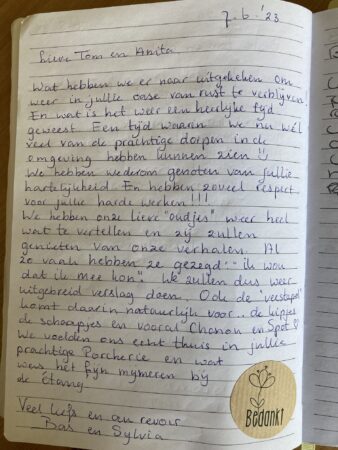 7.6.'23
Lieve Tom en Anita
Wat hebben we er naar uitgekeken om
weer in jullie oase van rust te verblijven!
En wat is het weer een heerlijke tijd
geweest. Een tijd waarin we nu wél
veel van de prachtige dorpen in de
omgeving hebben kunnen zien!!
We hebben wederom genoten van jullie
hartelijkheid. En hebben zoveel respect
voor jullie harde werken!!!
We hebben onze lieve "oudjes" weer heel
wat te vertellen en zij zullen
genieten van onze verhalen. Al
zo vaak hebben ze gezegd: "ik wou
dat ik mee kon". We zullen dus weer
uitgebreid verslag doen. Ook de "veestapel"
komt daarin natuurlijk voor.. de kipjes
de schaapjes en vooral Chanon en Spot
We voelden ons echt thuis in jullie
prachtige Porcherie en wat
was het fijn mymeren bij
de étang.
Veel liefs en au revoir
Bas en Sylvia
Bedankt